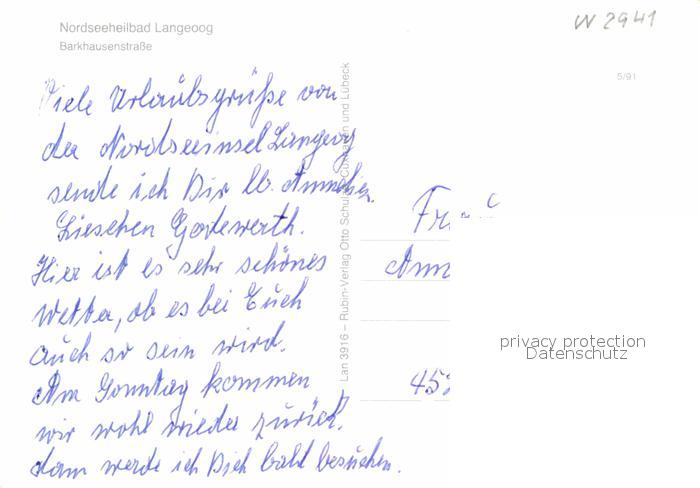 Nordseeheilbad Langeoog
Barkhausenstraße
W 2941
5/91
Viele Urlaubsgrüße von
der Nordseeinsel Langeoog
sende ich Dir lb. Annchen.
Lieschen Godewerth.
Hier ist es sehr schönes
Wetter, ob es bei Euch
auch so sein wird.
Am Sonntag kommen
wir wohl wieder zurück.
dann werde ich Dich bald besuchen.
Lan 3916 – Rubin-Verlag Otto Schulze Cuxhaven und Lübeck
Ann
45
privacy protection
Datenschutz